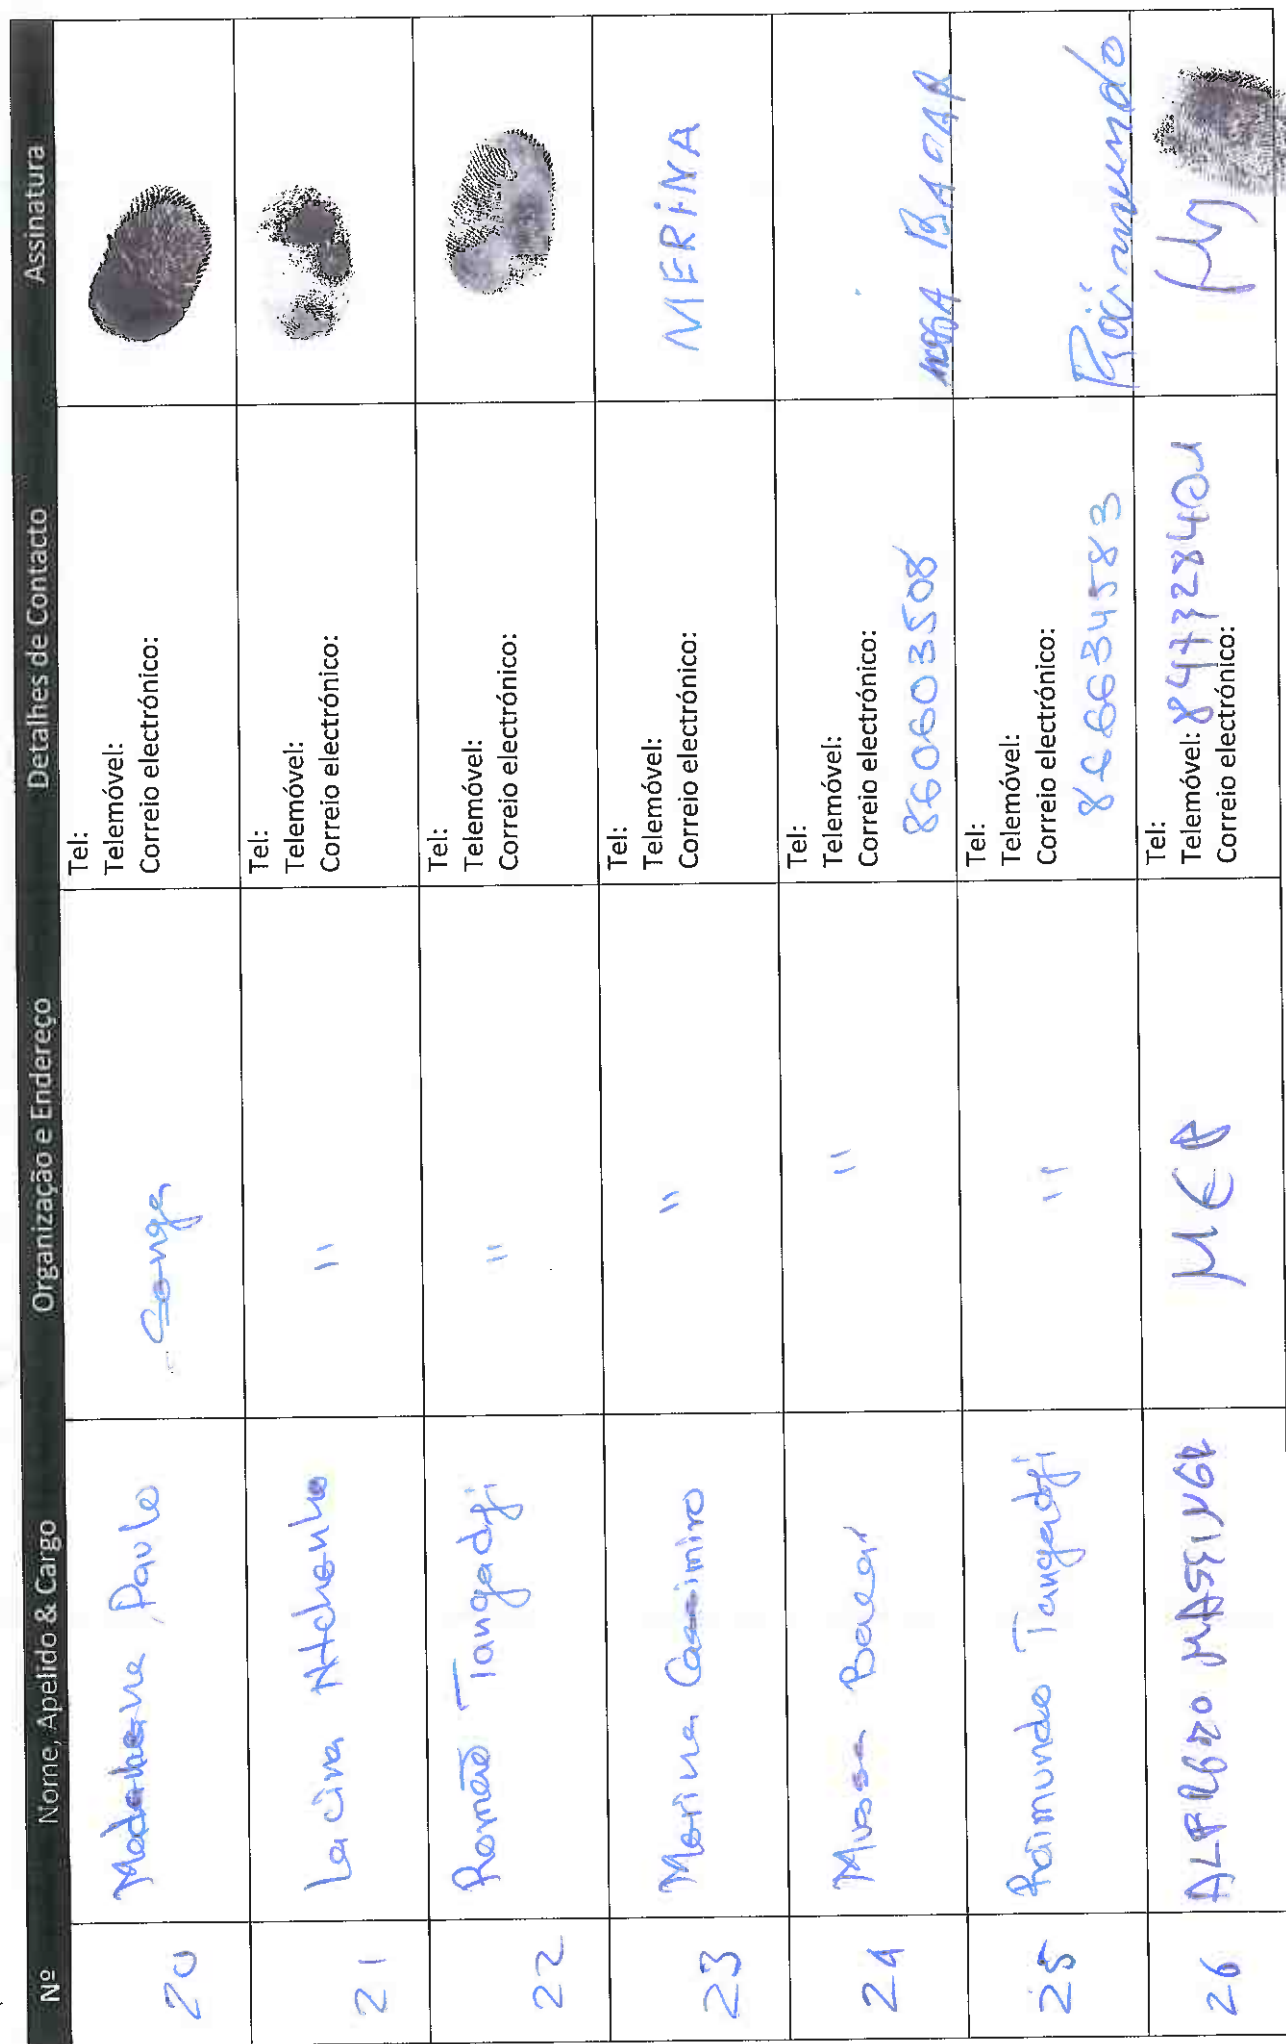 Nº Nome, Apelido & Cargo Organização e Endereço Detalhes de Contacto Assinatura
20 Madalena Paulo Senga Tel:
Telemóvel:
Correio electrónico:
21 Lacina " Tel:
Telemóvel:
Correio electrónico:
22 Romão Tangadji " Tel:
Telemóvel:
Correio electrónico:
23 Merina Cassimiro " Tel:
Telemóvel:
Correio electrónico:
MERINA
24 Mussa Bacar " Tel:
Telemóvel:
Correio electrónico:
860603508
25 Raimundo Tangadji " Tel:
Telemóvel:
Correio electrónico:
866634583
Raimundo
26 ALFREDO MASSINGA Tel:
Telemóvel:
Correio electrónico: